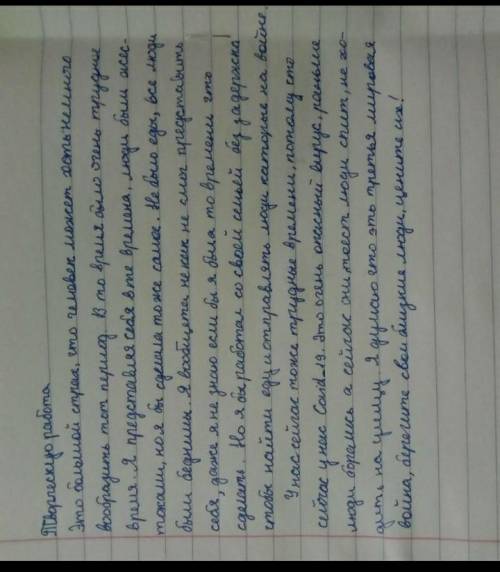 Творческую работа
Это большой страх, что человек может хоть немного
вообразить тот период. В то время было очень трудные
время. Я представляя себя в те времена, люди были жес-
токами, но я бы сделала тоже самое. Не было еды, все люди
были бедными. Я вообщем не как не смог представить
себя, даже я не знаю если бы я была то времени что
сделать. Но я бы работал со своей семьей без задержка
чтобы найти еду и отправлять люди каторые на войне.
У нас сейчас тоже трудные времени, потому что
сейчас у нас Covid-19. Это очень опасный вирус, раньше
люди боролись а сейчас они поест люди спит, не хо-
дить на улицу. Я думаю что это третья мировая
война, берегите свои близкие люди, цените их!